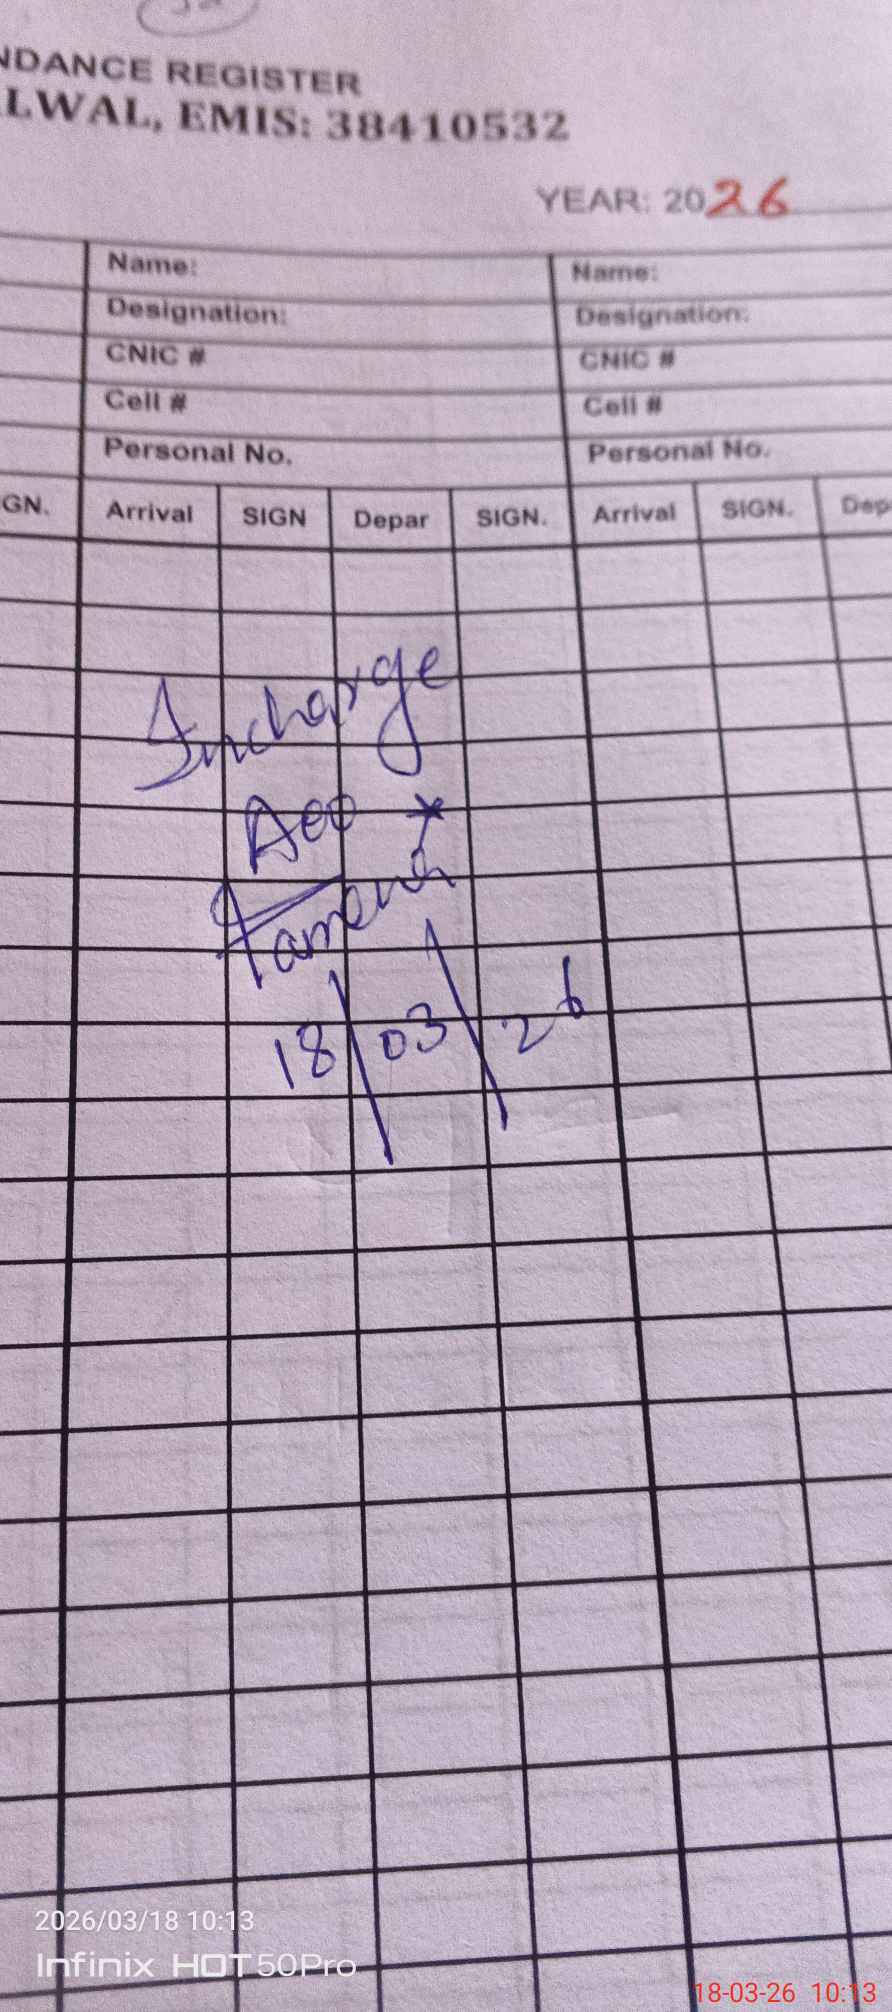 NDANCE REGISTER
LWAL, EMIS: 38410532
YEAR: 2026
Name: Name:
Designation: Designation:
CNIC # CNIC #
Cell # Cell #
Personal No. Personal No.
GN. Arrival SIGN Depar SIGN. Arrival SIGN. Dep
Incharge
AEO
18/03/26
2026/03/18 10:13
Infinix HOT 50 Pro
18-03-26 10:13